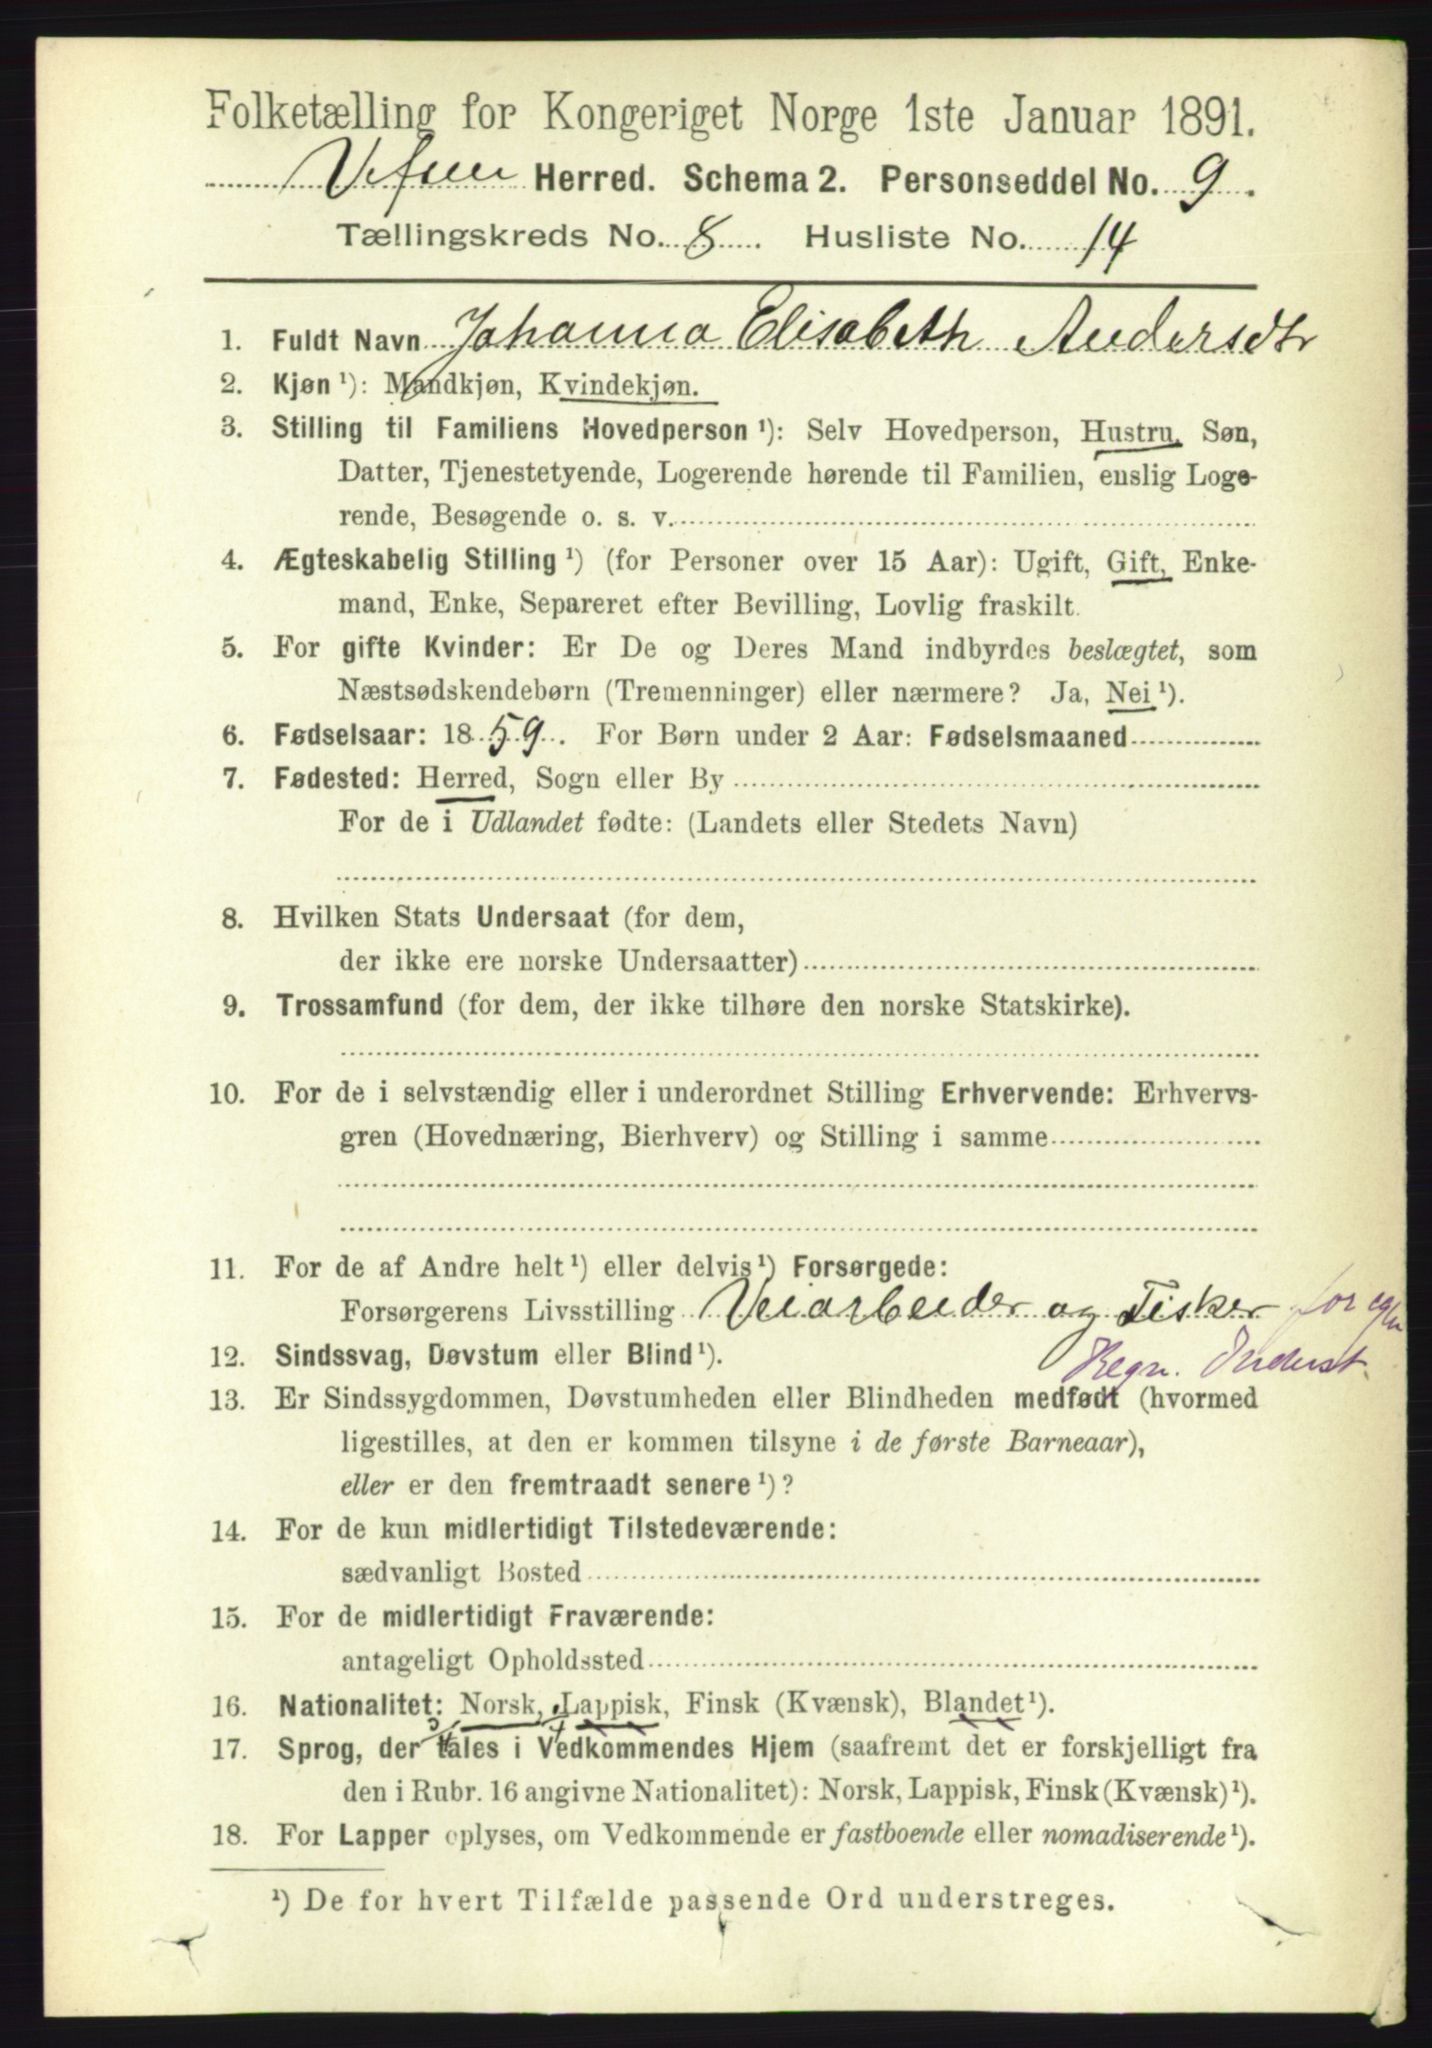 Folketælling for Kongeriget Norge 1ste Januar 1891.
Vefsen Herred. Schema 2. Personseddel No. 9.
Tællingskreds No. 8. Husliste No. 14
1. Fuldt Navn Johanna Elisabeth Andersdtr
2. Kjøn ¹): Mandkjøn, Kvindekjøn.
3. Stilling til Familiens Hovedperson ¹): Selv Hovedperson, Hustru, Søn,
Datter, Tjenestetyende, Logerende hørende til Familien, enslig Loge-
rende, Besøgende o. s. v.
4. Ægteskabelig Stilling ¹) (for Personer over 15 Aar): Ugift, Gift, Enke-
mand, Enke, Separeret efter Bevilling, Lovlig fraskilt.
5. For gifte Kvinder: Er De og Deres Mand indbyrdes beslægtet, som
Næstsødskendebørn (Tremenninger) eller nærmere? Ja, Nei ¹).
6. Fødselsaar: 1859. For Børn under 2 Aar: Fødselsmaaned
7. Fødested: Herred, Sogn eller By
For de i Udlandet fødte: (Landets eller Stedets Navn)
8. Hvilken Stats Undersaat (for dem,
der ikke ere norske Undersaatter)
9. Trossamfund (for dem, der ikke tilhøre den norske Statskirke).
10. For de i selvstændig eller i underordnet Stilling Erhvervende: Erhvervs-
gren (Hovednæring, Bierhverv) og Stilling i samme
11. For de af Andre helt ¹) eller delvis ¹) Forsørgede:
Forsørgerens Livsstilling Veiarbeider og Fisker for egen
12. Sindssvag, Døvstum eller Blind ¹). Regn.
13. Er Sindssygdommen, Døvstumheden eller Blindheden medfødt (hvormed
ligestilles, at den er kommen tilsyne i de første Barneaar),
eller er den fremtraadt senere ¹)?
14. For de kun midlertidigt Tilstedeværende:
sædvanligt Bosted
15. For de midlertidigt Fraværende:
antageligt Opholdssted
16. Nationalitet: Norsk, Lappisk, Finsk (Kvænsk), Blandet ¹).
17. Sprog, der tales i Vedkommendes Hjem (saafremt det er forskjelligt fra
den i Rubr. 16 angivne Nationalitet): Norsk, Lappisk, Finsk (Kvænsk) ¹).
18. For Lapper oplyses, om Vedkommende er fastboende eller nomadiserende ¹).
¹) De for hvert Tilfælde passende Ord understreges.